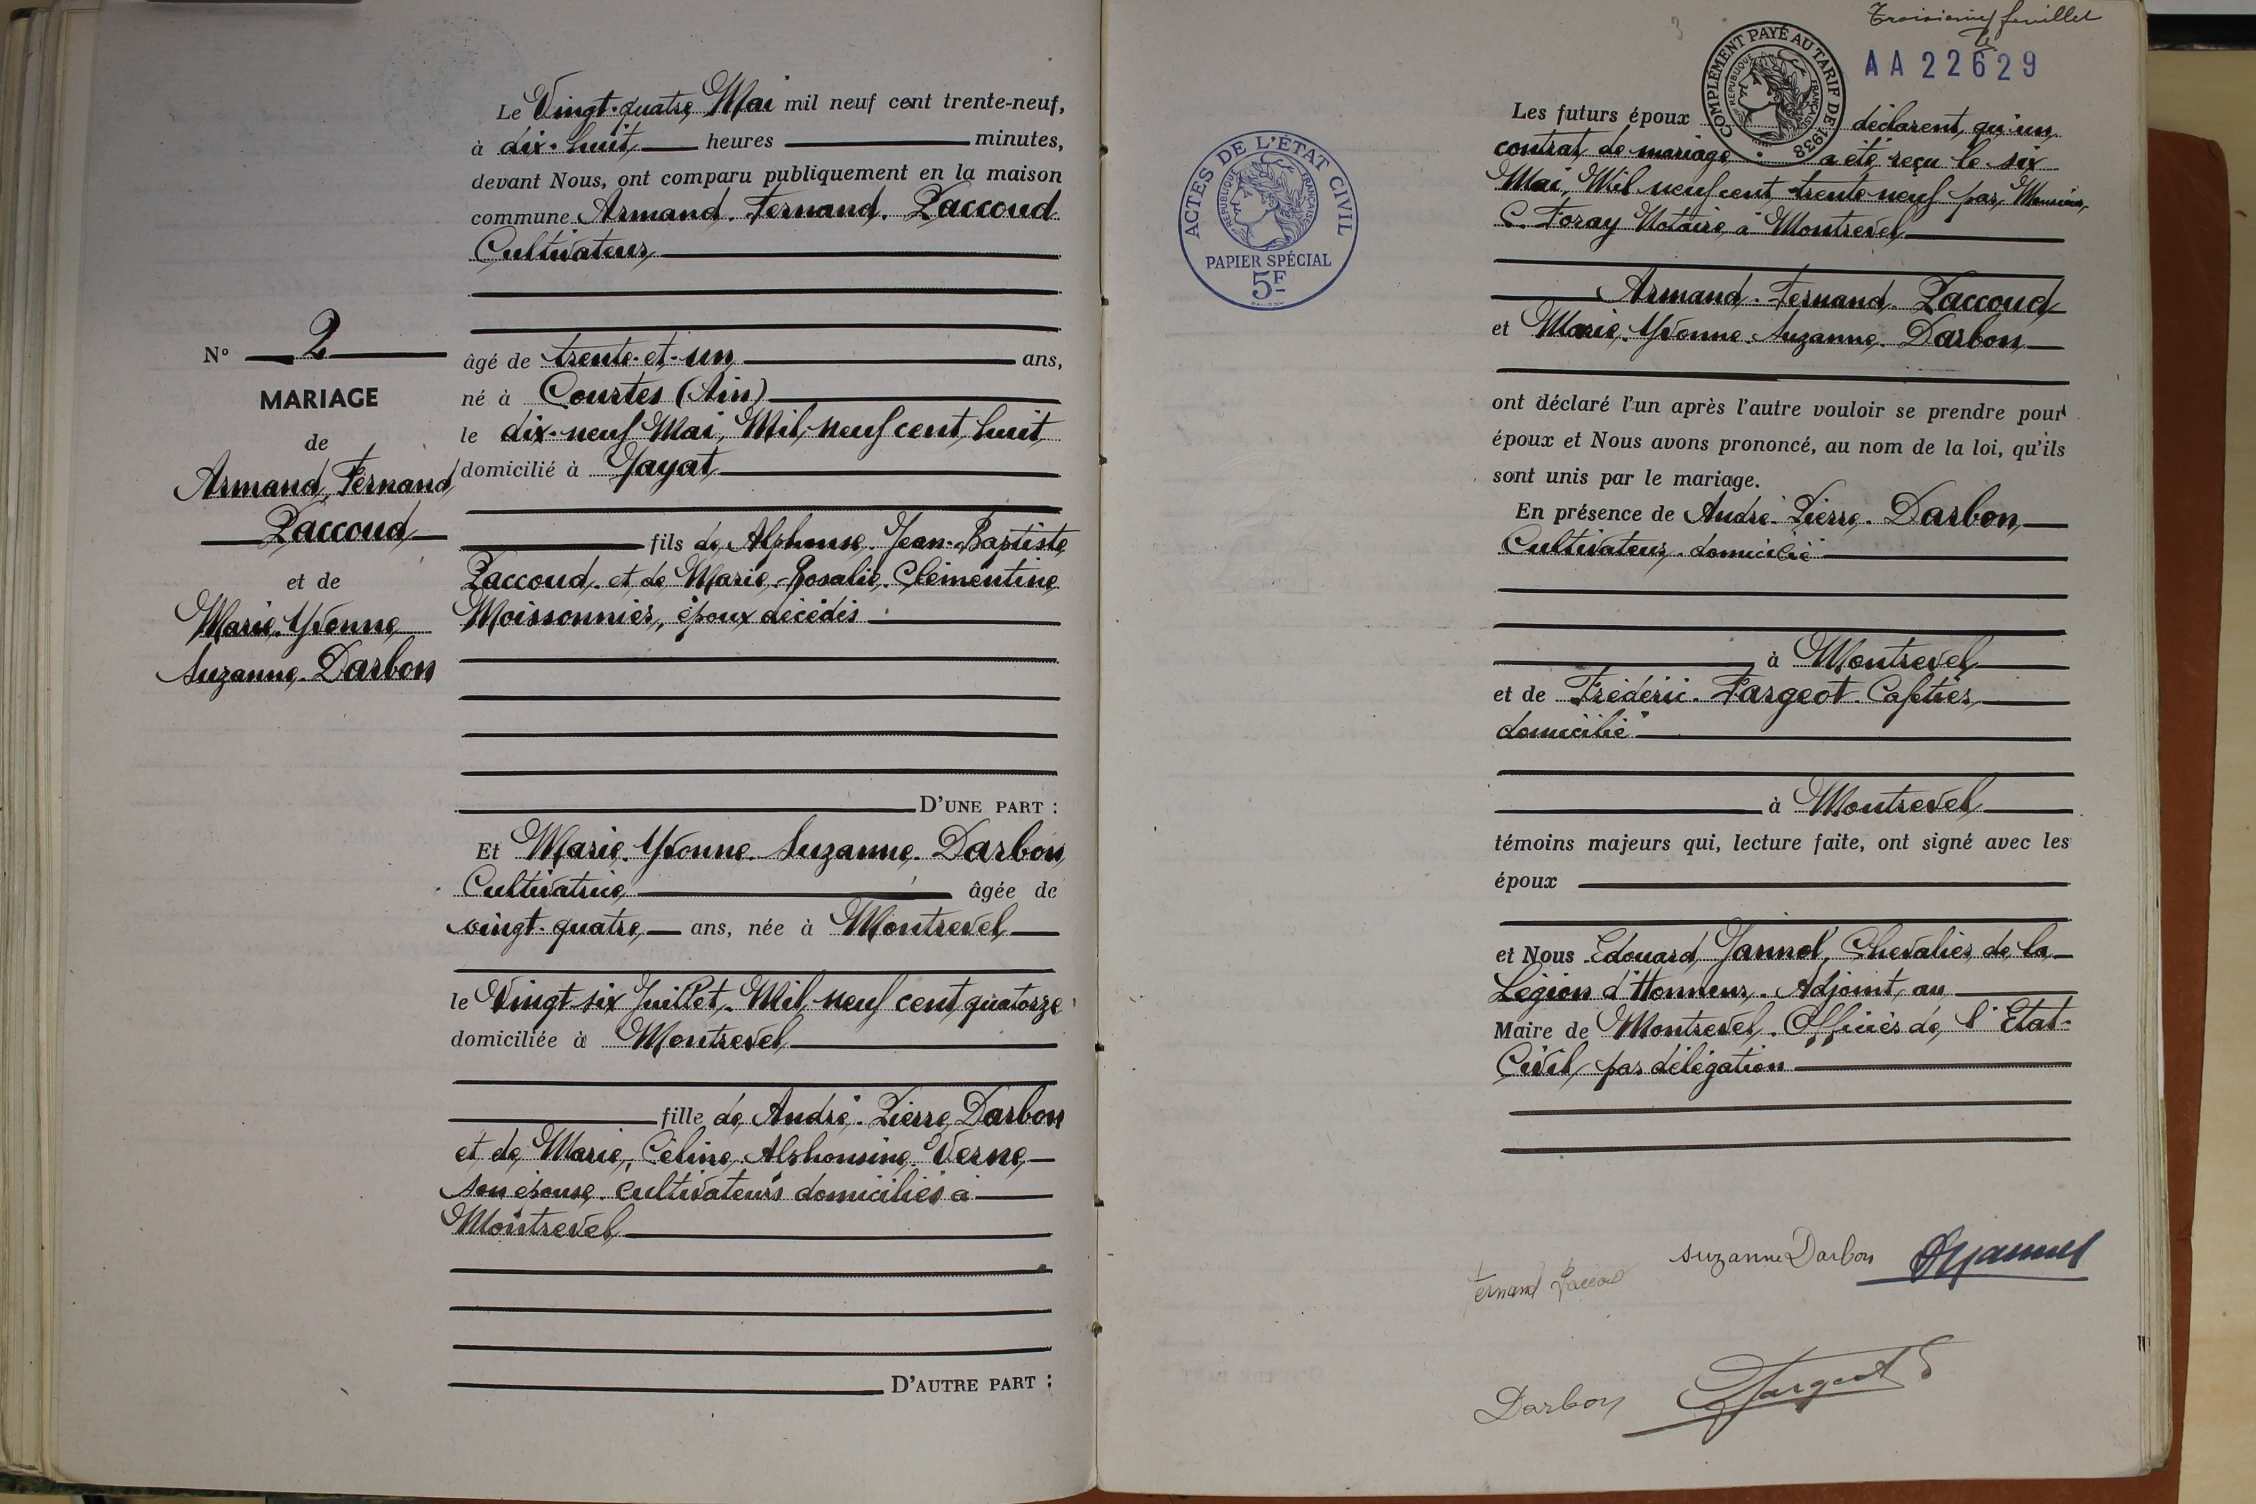 Le Vingt-quatre Mai mil neuf cent trente-neuf,
à dix-huit heures minutes,
devant Nous, ont comparu publiquement en la maison
commune Armand. Fernand. Paccoud
Cultivateur
N° 2
MARIAGE
de
Armand, Fernand
Paccoud
et de
Marie. Yvonne
Suzanne. Darbon
âgé de trente-et-un ans,
né à Courtes (Ain)
le dix-neuf Mai, Mil neuf cent huit
domicilié à Jayat
fils de Alphonse. Jean-Baptiste
Paccoud. et de Marie. Rosalie. Clémentine
Moissonnier, époux décédés
D'UNE PART :
Et Marie. Yvonne. Suzanne. Darbon
Cultivatrice âgée de
vingt-quatre ans, née à Montrevel
le Vingt six Juillet. Mil neuf cent quatorze
domiciliée à Montrevel
fille de André. Pierre Darbon
et de Marie, Céline, Alphonsine. Verne
son épouse. cultivateurs domiciliés à
Montrevel
D'AUTRE PART :
Troisième feuillet
AA 22629
COMPLÉMENT PAYÉ AU TARIF DE 1938
RÉPUBLIQUE FRANÇAISE
ACTES DE L'ÉTAT CIVIL
RÉPUBLIQUE FRANÇAISE
PAPIER SPÉCIAL
5F
Les futurs époux déclarent qu'un
contrat de mariage a été reçu le six
Mai, Mil neuf cent trente neuf par Monsieur
C. Foray Notaire à Montrevel
Armand. Fernand. Paccoud
et Marie. Yvonne. Suzanne. Darbon
ont déclaré l'un après l'autre vouloir se prendre pour
époux et Nous avons prononcé, au nom de la loi, qu'ils
sont unis par le mariage.
En présence de André. Pierre. Darbon
Cultivateur. domicilié
à Montrevel
et de Frédéric. Fargeot. Cafetier
domicilié
à Montrevel
témoins majeurs qui, lecture faite, ont signé avec les
époux
et Nous Edouard Jannel, Chevalier de la
Légion d'Honneur. Adjoint au
Maire de Montrevel. Officier de l'Etat-
Civil par délégation
Suzanne Darbon
Fernand Paccoud
Darbon
Fargeot